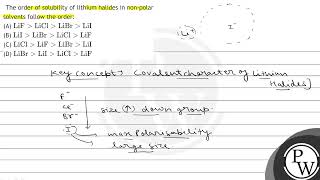 The order of solubility of lithium halides in non-polar
solvents follow the order:
(A) LiF > LiCl > LiBr > LiI
(B) LiI > LiBr > LiCl > LiF
(C) LiCl > LiF > LiBr > LiI
(D) LiBr > LiI > LiCl > LiF
Li+
I-
Key concept → Covalent character of Lithium
Halides]
F-
Cl-
Br-
I-
size (↑) down group.
max Polarisability
large size
PW